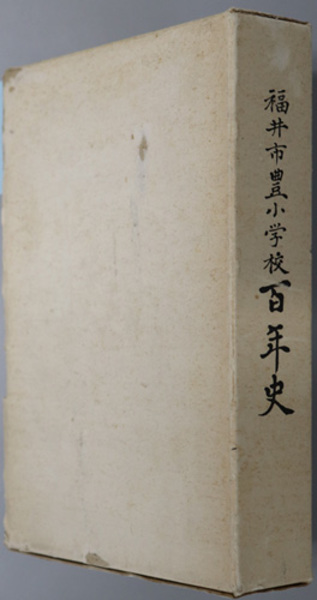 福井市豊小学校百年史